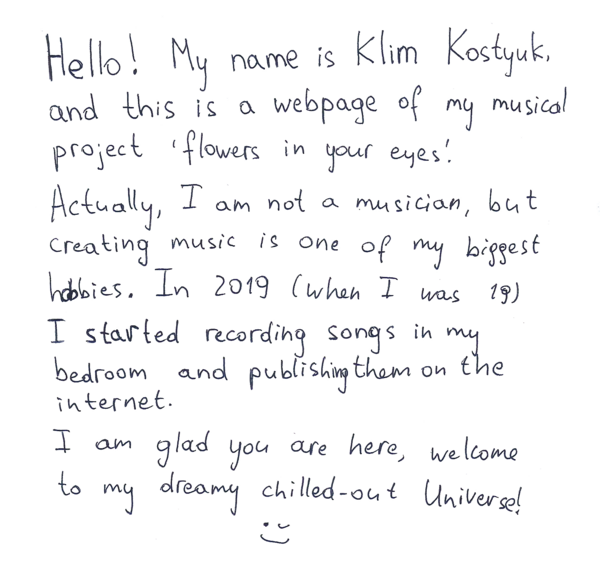 Hello! My name is Klim Kostyuk,
and this is a webpage of my musical
project 'flowers in your eyes'.
Actually, I am not a musician, but
creating music is one of my biggest
hobbies. In 2019 (when I was 19)
I started recording songs in my
bedroom and publishing them on the
internet.
I am glad you are here, welcome
to my dreamy chilled-out Universe!